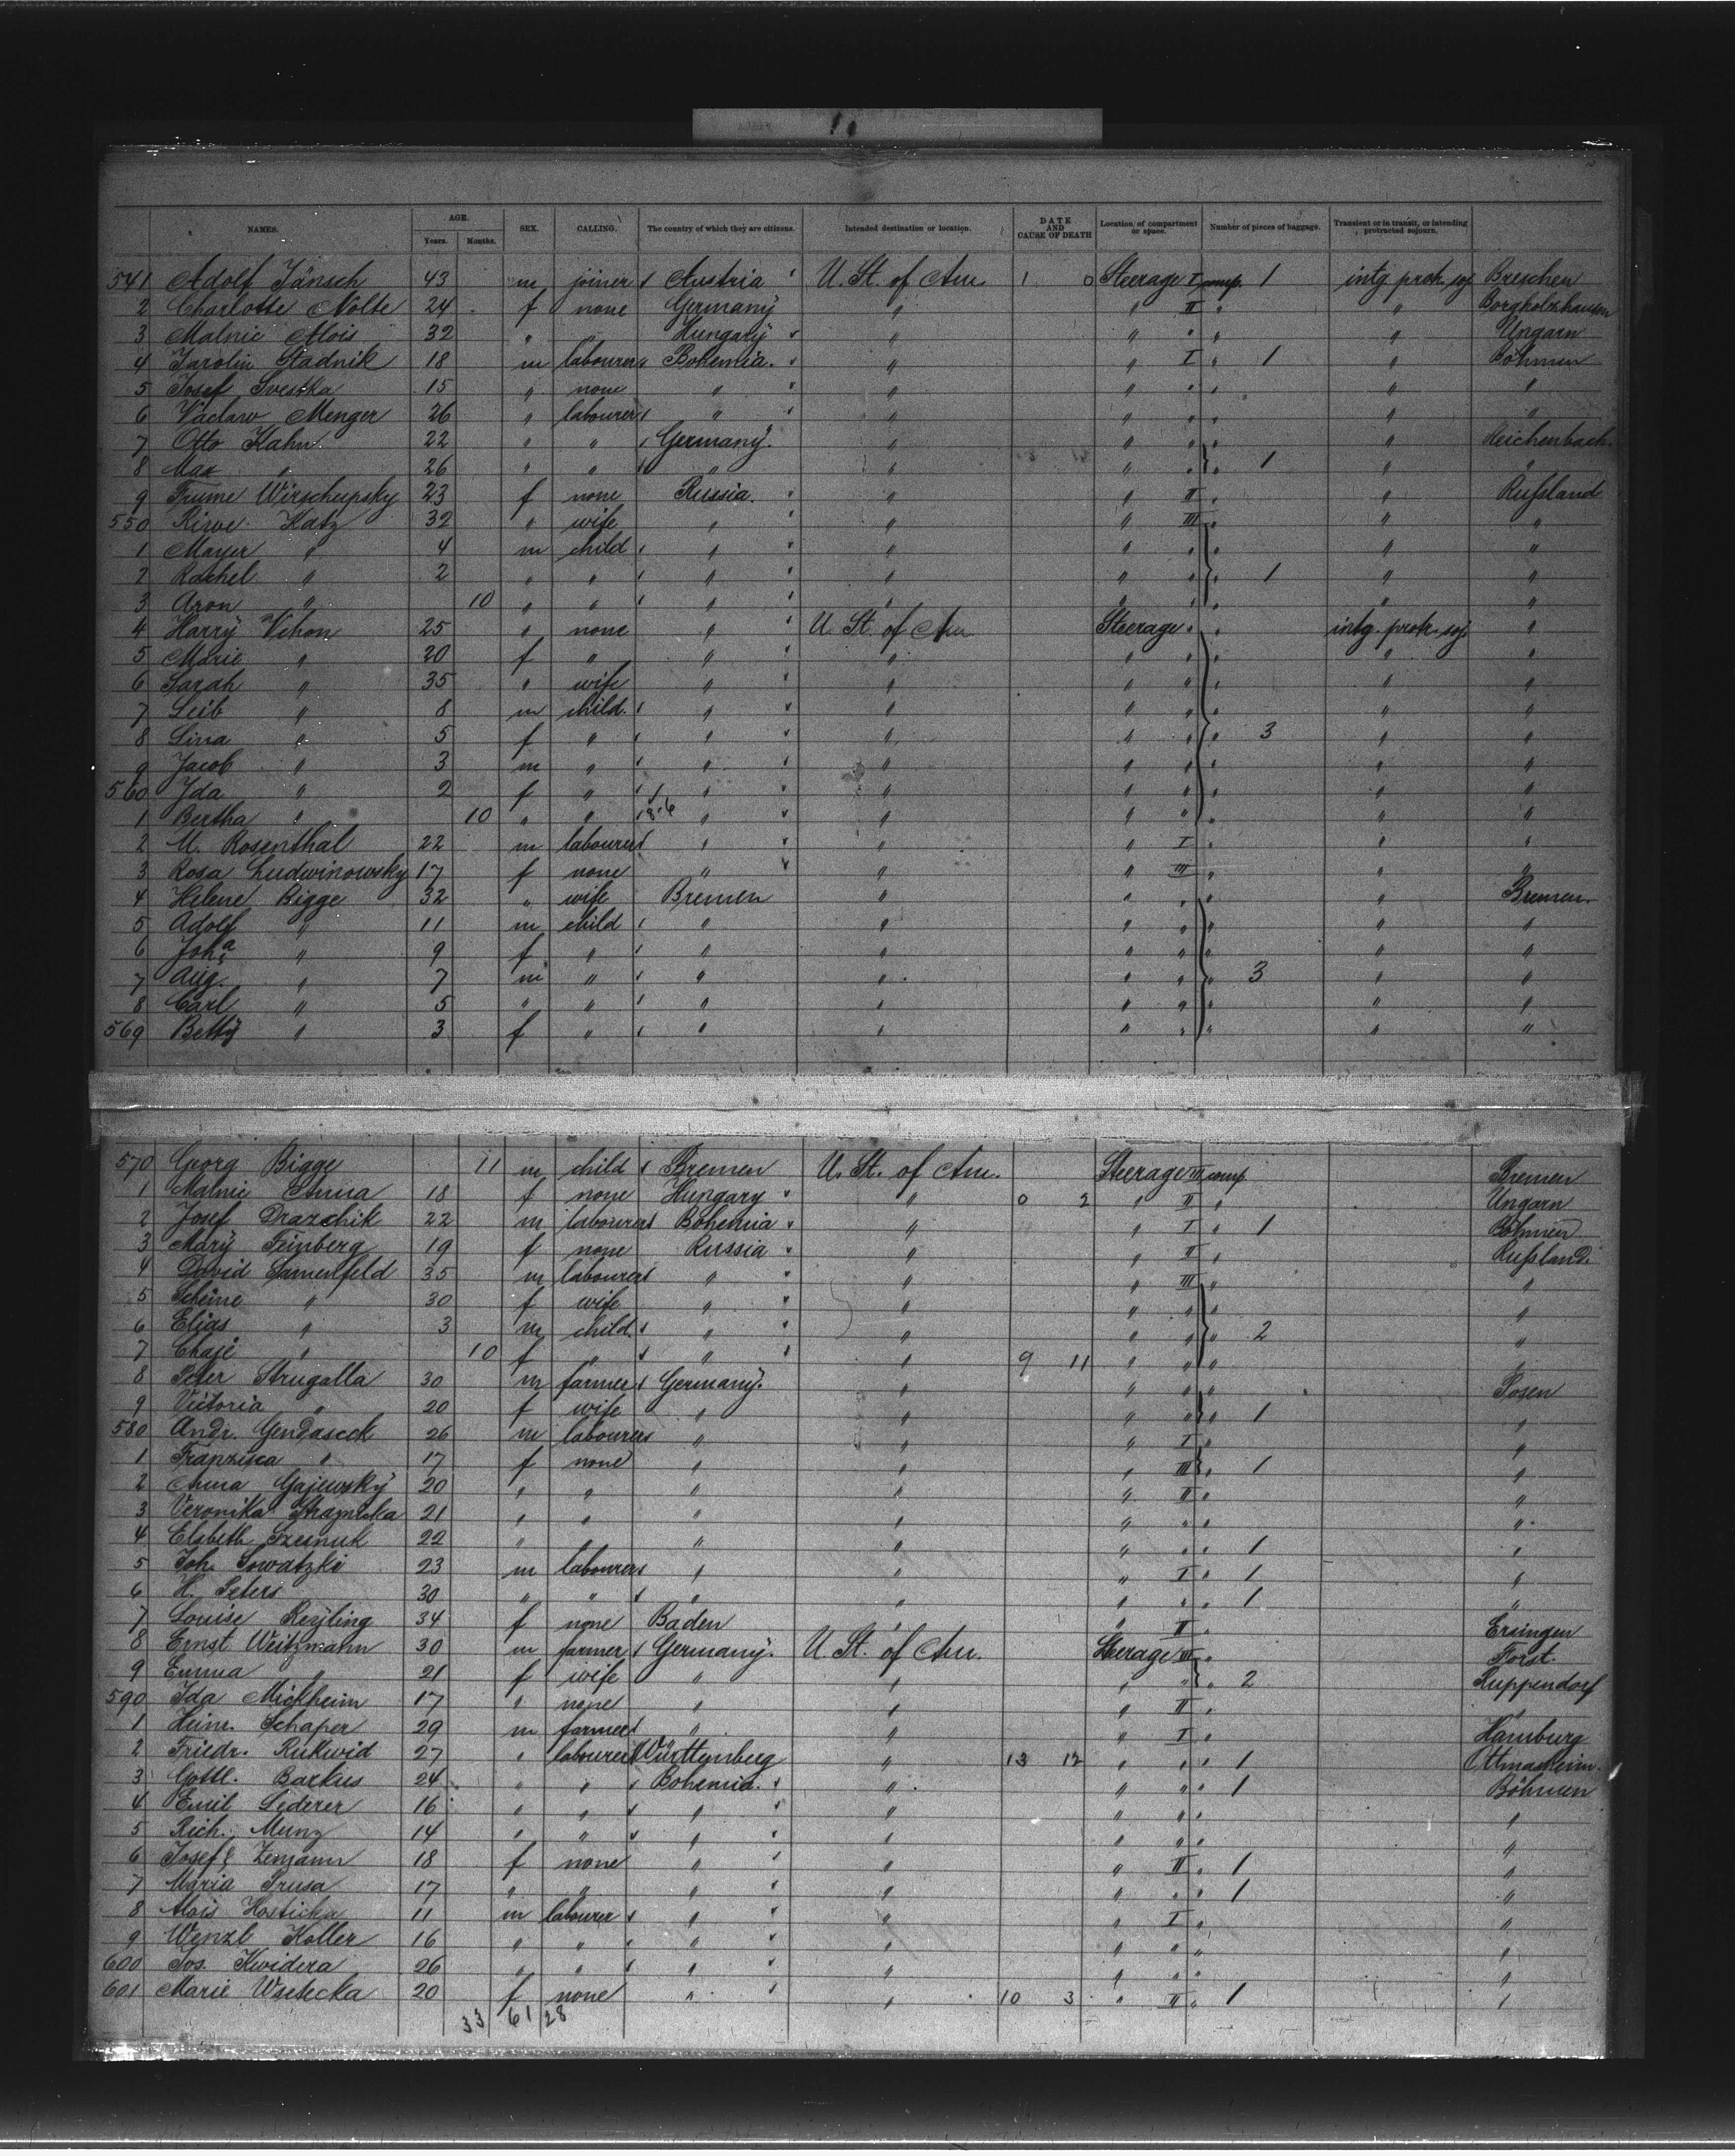 NAMES. AGE. Years. Months. SEX. CALLING. The country of which they are citizens. Intended destination or location. DATE AND CAUSE OF DEATH Location of compartment or space. Number of pieces of baggage. Transient or in transit, or intending protracted sojourn.
541 Adolf Jänsch 43 m joiner Austria U. St. of Am. 1 0 Steerage I comp. 1 intg. protr. soj. Breschen
2 Charlotte Nolte 24 f none Germany " " II " " Borgholzhausen
3 Malnic Alois 32 " Hungary " " " " " Ungarn
4 Jarolin Stadnik 18 m labourer Bohemia " " I " 1 " Böhmen
5 Josef Svestka 15 " none " " " " " " "
6 Vaclaw Menger 26 " labourer " " " " " " "
7 Otto Kahn 22 " " Germany " " " " " Reichenbach
8 Max " 26 " " " " " " " 1 " "
9 Frume Wirschupsky 23 f none Russia " " II " " Rußland
550 Riwe Katz 32 " wife " " " III " " "
1 Mayer " 4 m child " " " " " " "
2 Rachel " 2 " " " " " " " 1 " "
3 Aron " 10 " " " " " " " " "
4 Harry Vihon 25 " none " U. St. of Am. Steerage " " intg. protr. soj. "
5 Marie " 20 f " " " " " " " "
6 Sarah " 35 " wife " " " " " " "
7 Leib " 8 m child " " " " " " "
8 Lina " 5 f " " " " " " 3 " "
9 Jacob " 3 m " " " " " " " "
560 Ida " 2 f " " " " " " " "
1 Bertha " 10 " " " " " " " " "
2 M. Rosenthal 22 m labourer " " " I " " "
3 Rosa Ludwinowsky 17 f none " " " III " " "
4 Helene Bigge 32 " wife Bremen " " " " " Bremen
5 Adolf " 11 m child " " " " " " "
6 Joha " 9 f " " " " " " " "
7 Aug. " 7 m " " " " " " 3 " "
8 Carl " 5 " " " " " " " " "
569 Betty " 3 f " " " " " " " "
570 Georg Bigge 11 m child Bremen U. St. of Am. Steerage III comp. Bremen
1 Malnic Anna 18 f none Hungary " 0 2 " II " Ungarn
2 Josef Drazchik 22 m labourer Bohemia " " I " 1 Böhmen
3 Mary Feinberg 19 f none Russia " " II " Rußland
4 David Samenfeld 35 m labourer " " " III " "
5 Scheine " 30 f wife " " " " " "
6 Elias " 3 m child " " " " " 2 "
7 Chaje " 10 f " " " 9 11 " " " "
8 Peter Strugalla 30 m farmer Germany " " " " Posen
9 Victoria " 20 f wife " " " " " 1 "
580 Andr. Gendaseck 26 m labourer " " " I " "
1 Franzisca " 17 f none " " " III " 1 "
2 Anna Gajewsky 20 " " " " " II " "
3 Veronika 21 " " " " " " " "
4 Elsbeth 22 " " " " " " " 1 "
5 Joh. Sowatzki 23 m labourer " " " I " 1 "
6 H. Peters 30 " " " " " " " 1 "
7 Louise Reyling 34 f none Baden " " II " Ersingen
8 Ernst Weitzmann 30 m farmer Germany U. St. of Am. Steerage III " Forst
9 Emma " 21 f wife " " " " " 2 Ruppendorf
590 Ida Mickheim 17 " none " " " II " "
1 Heinr. Schaper 29 m farmer " " " I " Hamburg
2 Friedr. Rukwid 27 " labourer Württemberg " 13 12 " " " 1 Ottmarsheim
3 Gottl. Barkus 24 " " Bohemia " " " " 1 Böhmen
4 Emil Lederer 16 " " " " " " " "
5 Rich. Munz 14 " " " " " " " "
6 Josefe Zemann 18 f none " " " II " 1 "
7 Maria Prusa 17 " " " " " " " 1 "
8 Alois Hosticka 11 m labourer " " " I " "
9 Wenzl Koller 16 " " " " " " " "
600 Jos. Kwidera 26 " " " " " " " "
601 Marie Wsetecka 20 f none " " 10 3 " II " 1 "
33 61 28